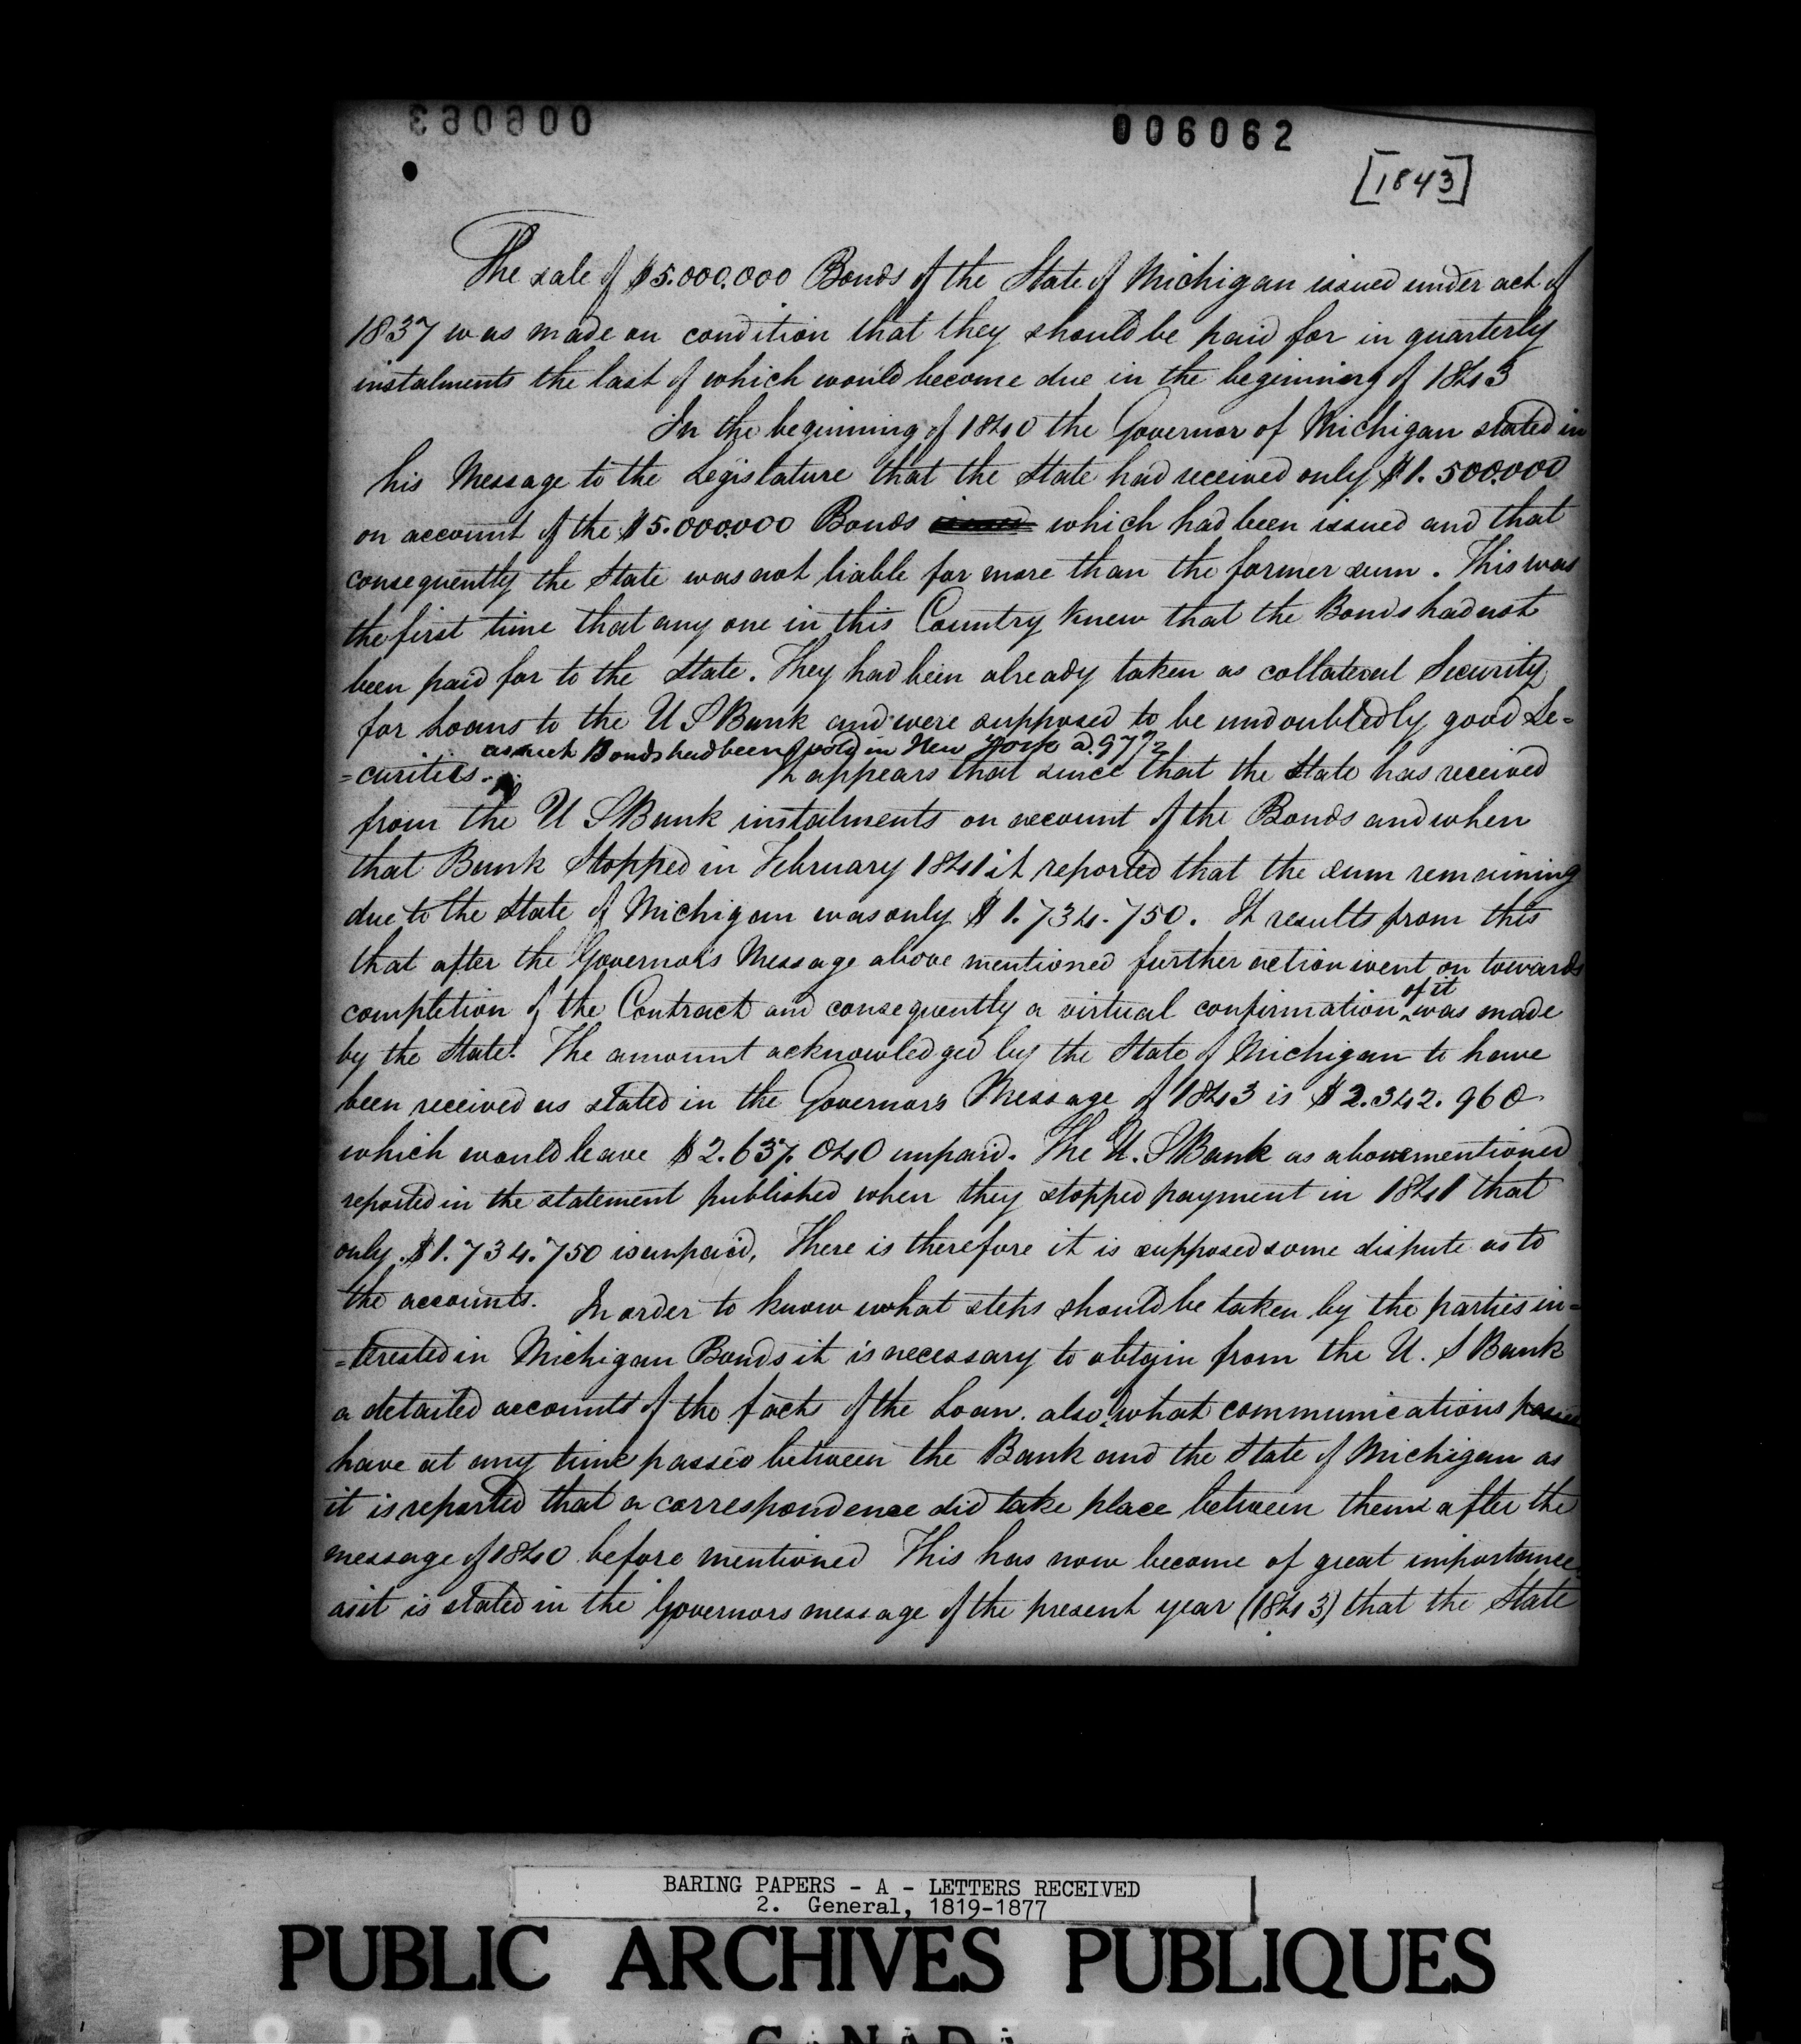 006063
006062
[1843]
The sale of $5.000.000 Bonds of the State of Michigan issued under act of
1837 was made on condition that they should be paid for in quarterly
instalments the last of which would become due in the beginning of 1843
In the beginning of 1840 the Governor of Michigan stated in
his Message to the Legislature that the State had received only $1.500.000
on account of the $5.000.000 Bonds issued which had been issued and that
consequently the State was not liable for more than the former sum. This was
the first time that any one in this Country knew that the Bonds had not
been paid for to the State. They had been already taken as collateral Security
for Loans to the U S Bank and were supposed to be undoubtedly good Se=
as such Bonds had been sold in New York a. 97½
=curities. It appears that since that the State has received
from the U S Bank instalments on account of the Bonds and when
that Bank Stopped in February 1841 it reported that the sum remaining
due to the State of Michigan was only $1.734.750. It results from this
that after the Governor's Message above mentioned further action went on towards
of it
completion of the Contract and consequently a virtual confirmation ^ was made
by the State. The amount acknowledged by the State of Michigan to have
been received as stated in the Governor's Message of 1843 is $2.342.960
which would leave $2.637.040 unpaid. The U. S Bank as abovementioned
reported in the statement published when they stopped payment in 1841 that
only $1.734.750 is unpaid, There is therefore it is supposed some dispute as to
the accounts. In order to know what steps should be taken by the parties in=
=terested in Michigan Bonds it is necessary to obtain from the U. S Bank
a detailed accounts of the facts of the Loan. also, what communications
have at any time passed between the Bank and the State of Michigan as
it is reported that a correspondence did take place between them after the
message of 1840 before mentioned This has now become of great importance
as it is stated in the Governors message of the present year (1843) that the State
BARING PAPERS - A - LETTERS RECEIVED
2. General, 1819-1877
PUBLIC ARCHIVES PUBLIQUES
CANADA